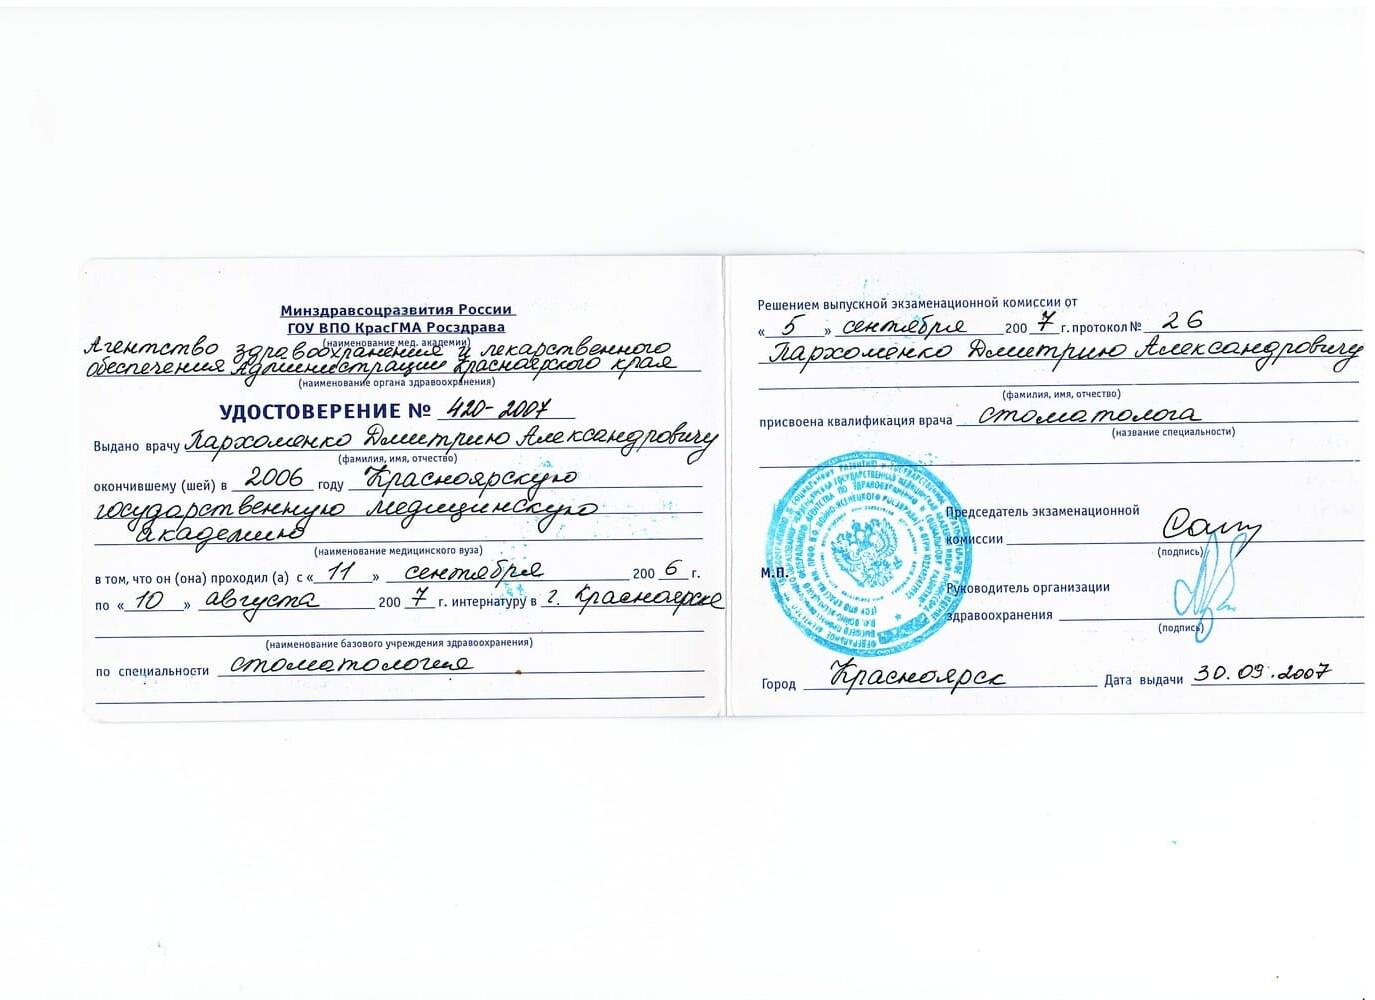 Минздравсоцразвития России
ГОУ ВПО КрасГМА Росздрава
(наименование мед. академии)
Агентство здравоохранения и лекарственного
обеспечения Администрации Красноярского края
(наименование органа здравоохранения)
УДОСТОВЕРЕНИЕ № 420-2007
Выдано врачу Пархоменко Дмитрию Александровичу
(фамилия, имя, отчество)
окончившему (шей) в 2006 году Красноярскую
государственную медицинскую
академию
(наименование медицинского вуза)
в том, что он (она) проходил (а) с « 11 » сентября 200 6 г.
по « 10 » августа 200 7 г. интернатуру в г. Красноярске
(наименование базового учреждения здравоохранения)
по специальности стоматология
Решением выпускной экзаменационной комиссии от
« 5 » сентября 200 7 г. протокол № 26
Пархоменко Дмитрию Александровичу
(фамилия, имя, отчество)
присвоена квалификация врача стоматолога
(название специальности)
Председатель экзаменационной
комиссии
(подпись)
М.П.
Руководитель организации
здравоохранения
(подпись)
Город Красноярск Дата выдачи 30.09.2007